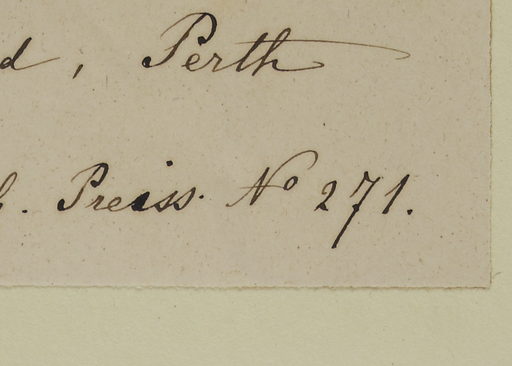 d, Perth
. Preiss. No 271.